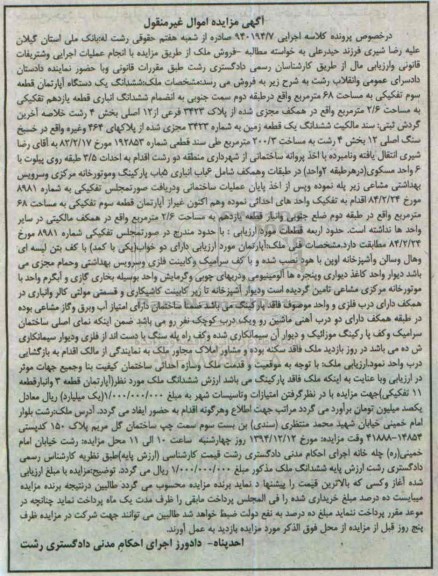 آگهی مزایده اموال غیرمنقول
درخصوص پرونده کلاسه اجرایی ۹۴۰۱۹۴/۷ صادره از شعبه هفتم حقوقی رشت له/بانک ملی استان گیلان
علیه رضا شیری فرزند حیدرعلی به خواسته مطالبه -فروش ملک از طریق مزایده با انجام عملیات اجرایی وشتریفات
قانونی وارزیابی مال از طریق کارشناسان رسمی دادگستری رشت طبق مقررات قانونی وبا حضور نماینده دادستان
دادسرای عمومی وانقلاب رشت به شرح زیر به فروش می رسد:مشخصات ملک:ششدانگ یک دستگاه آپارتمان قطعه
سوم تفکیکی به مساحت ۶۸ مترمربع واقع درطبقه دوم سمت جنوبی به انضمام ششدانگ انباری قطعه یازدهم تفکیکی
به مساحت ۲/۶ مترمربع واقع در همکف مجزی شده از پلاک ۳۴۲۳ فرعی از۱۲ اصلی بخش ۴ رشت خلاصه آخرین
گردش ثبتی: سند مالکیت ششدانگ یک قطعه زمین به شماره ۳۴۲۳ مجزی شده از پلاکهای ۴۶۴ وغیره واقع در خسبخ
سنگ اصلی ۱۲ بخش ۴ رشت به مساحت ۲۰۰/۳ مترمربع طی سند قطعی شماره ۱۹۲۸۵۳ مورخ ۸۲/۲/۱۷ به آقای رضا
شیری انتقال یافته ونامبرده با اخذ پروانه ساختمانی از شهرداری منطقه دو رشت اقدام به احداث ۳/۵ طبقه روی پیلوت با
۶ واحد مسکونی(درهرطبقه ۲واحد) در طبقات وهمکف شامل ۶باب انباری ۵باب پارکینگ وموتورخانه مرکزی وسرویس
بهداشتی مشاعی زیر پله نموده وپس از اخذ پایان عملیات ساختمانی ودریافت صورتمجلس تفکیکی به شماره ۸۹۸۱
مورخ ۸۴/۲/۲۴ اقدام به تفکیک واحد های احداثی نموده وهم اکنون غیراز آپارتمان قطعه سوم تفکیکی به مساحت ۶۸
مترمربع واقع در طبقه دوم ضلع جنوبی وانبار قطعه یازدهم به مساحت ۲/۶ مترمربع واقع در همکف مالکیتی در سایر
واحد ها نداشته است. حدود اربعه قطعات مورد ارزیابی : با حدود مندرج در صورتمجلس تفکیکی شماره ۸۹۸۱ مورخ
۸۴/۲/۲۴ مطابقت دارد.مشخصات فنی ملک:آپارتمان مورد ارزیابی دارای دو خواب(یکی با کمد) با کف بتن لیسه ای
وهال وسالن وآشپزخانه اوپن با هود نصب شده و با کف سرامیک وکابینت فلزی وسرویس بهداشتی وحمام مجزی می
باشد دیوار واحد کاغذ دیواری وپنجره ها آلومینیومی ودربهای چوبی وگرمایش واحد بوسیله بخاری گازی و آبگرم واحد با
موتورخانه مرکزی مشاعی تامین گردیده است ودیوار آشپزخانه تا زیر کابینت کاشیکاری و قسمتی مولتی کالر وانباری در
همکف دارای درب فلزی و واحد موصوف فاقد پارکینگ می باشد ضمنا ساختمان دارای امتیاز آب وبرق وگاز مشاعی بوده
در طبقه همکف دارای دو درب آهنی ماشین رو ویک درب کوچک نفر رو می باشد ضمن اینکه نمای اصلی ساختمان
سرامیک وکف پا رکینگ موزائیک و دیوار آن سیمانکاری شده وکف راه پله سنگ با دست انداز از فلزی ودیوار سیمانکاری
ش ده می باشد در روز بازدید ملک فاقد سکنه بوده و مشاور املاک مجاور ملک به نمایندگی از مالک اقدام به بازگشایی
درب واحد نمود.ارزیابی ملک: با توجه به موقعیت و قدمت ملک وسازه احداثی ساختمان کیفیت بنا وجمیع جهات موثر
در ارزیابی وبا عنایت به اینکه ملک فاقد پارکینگ می باشد ارزش ششدانگ ملک مورد نظر(آپارتمان قطعه ۳ وانبارقطعه
۱۱ تفکیکی)جهت مزایده با در نظرگرفتن امتیازات وتاسیسات شهر به مبلغ ۱/۰۰۰/۰۰۰/۰۰۰(یک میلیارد) ریال معادل
یکصد میلیون تومان برآورد می گردد مراتب جهت اطلاع وهرگونه اقدام به حضور ایفاد می گردد. آدرس ملک:رشت بلوار
امام خمینی خیابان شهید محمد منتظری (سندی) بن بست سوم سمت چپ ساختمان گل مریم پلاک ۱۵۰ کدپستی
۱۳۸۵۴-۴۱۸۸۸ وقت مزایده: مورخ ۱۳۹۴/۱۲/۱۲ روز چهارشنبه ساعت ۱۰ الی ۱۱ محل مزایده: رشت خیابان امام
خمینی(ره) چله خانه اجرای احکام مدنی دادگستری رشت قیمت کارشناسی (ارزش پایه)طبق نظریه کارشناس رسمی
دادگستری رشت ارزش پایه ششدانگ ملک مذکور مبلغ ۱/۰۰۰/۰۰۰/۰۰۰ ریال می گردد. توضیح:مزایده با مبلغ ارزیابی
شده آغاز وکسی که بالاترین قیمت را پیشنها د نماید برنده مزایده محسوب می گردد طالبین درنتیجه برنده مزایده
میبایست ده درصد مبلغ خریداری شده را فی المجلس پرداخت مابقی را ظرف مدت یک ماه پرداخت نماید چنانچه در
موعد مقرر پرداخت ننماید مبلغ ده درصد به نفع دولت ضبط خواهد شد طالبین می توانند جهت شرکت در مزایده ظرف
پنج روز قبل از مزایده از محل فوق الذکر مورد مزایده بازدید به عمل آورند.
احدپناه- دادورز اجرای احکام مدنی دادگستری رشت